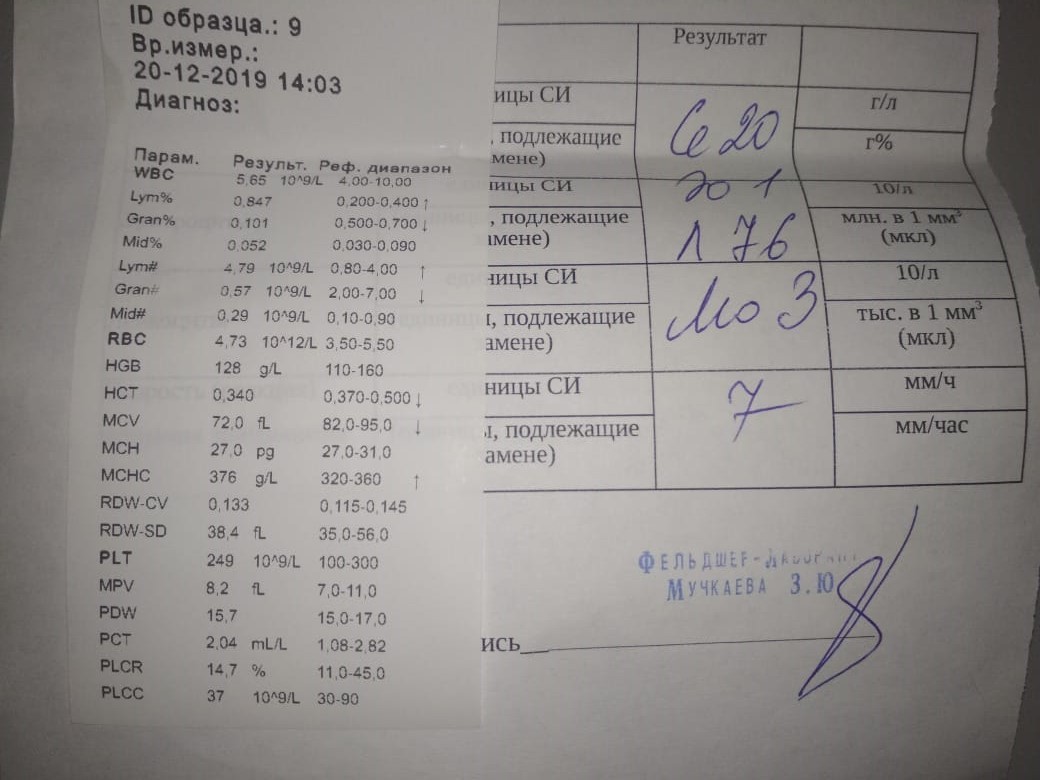 ID образца.: 9
Вр.измер.:
20-12-2019 14:03
Диагноз:
Парам. Результ. Реф. диапазон
WBC 5,65 10^9/L 4,00-10,00
Lym% 0,847 0,200-0,400 ↑
Gran% 0,101 0,500-0,700 ↓
Mid% 0,052 0,030-0,090
Lym# 4,79 10^9/L 0,80-4,00 ↑
Gran# 0,57 10^9/L 2,00-7,00 ↓
Mid# 0,29 10^9/L 0,10-0,90
RBC 4,73 10^12/L 3,50-5,50
HGB 128 g/L 110-160
HCT 0,340 0,370-0,500 ↓
MCV 72,0 fL 82,0-95,0 ↓
MCH 27,0 pg 27,0-31,0
MCHC 376 g/L 320-360 ↑
RDW-CV 0,133 0,115-0,145
RDW-SD 38,4 fL 35,0-56,0
PLT 249 10^9/L 100-300
MPV 8,2 fL 7,0-11,0
PDW 15,7 15,0-17,0
PCT 2,04 mL/L 1,08-2,82
PLCR 14,7 % 11,0-45,0
PLCC 37 10^9/L 30-90
Результат
ицы СИ г/л
, подлежащие г%
мене)
Се 20
ницы СИ 10/л
Эо 1
, подлежащие млн. в 1 мм³
амене) (мкл)
Л 76
ницы СИ 10/л
, подлежащие тыс. в 1 мм³
амене) (мкл)
Мо 3
ницы СИ мм/ч
, подлежащие мм/час
амене)
7
Фельдшер-лаборант
Мучкаева З.Ю
ись